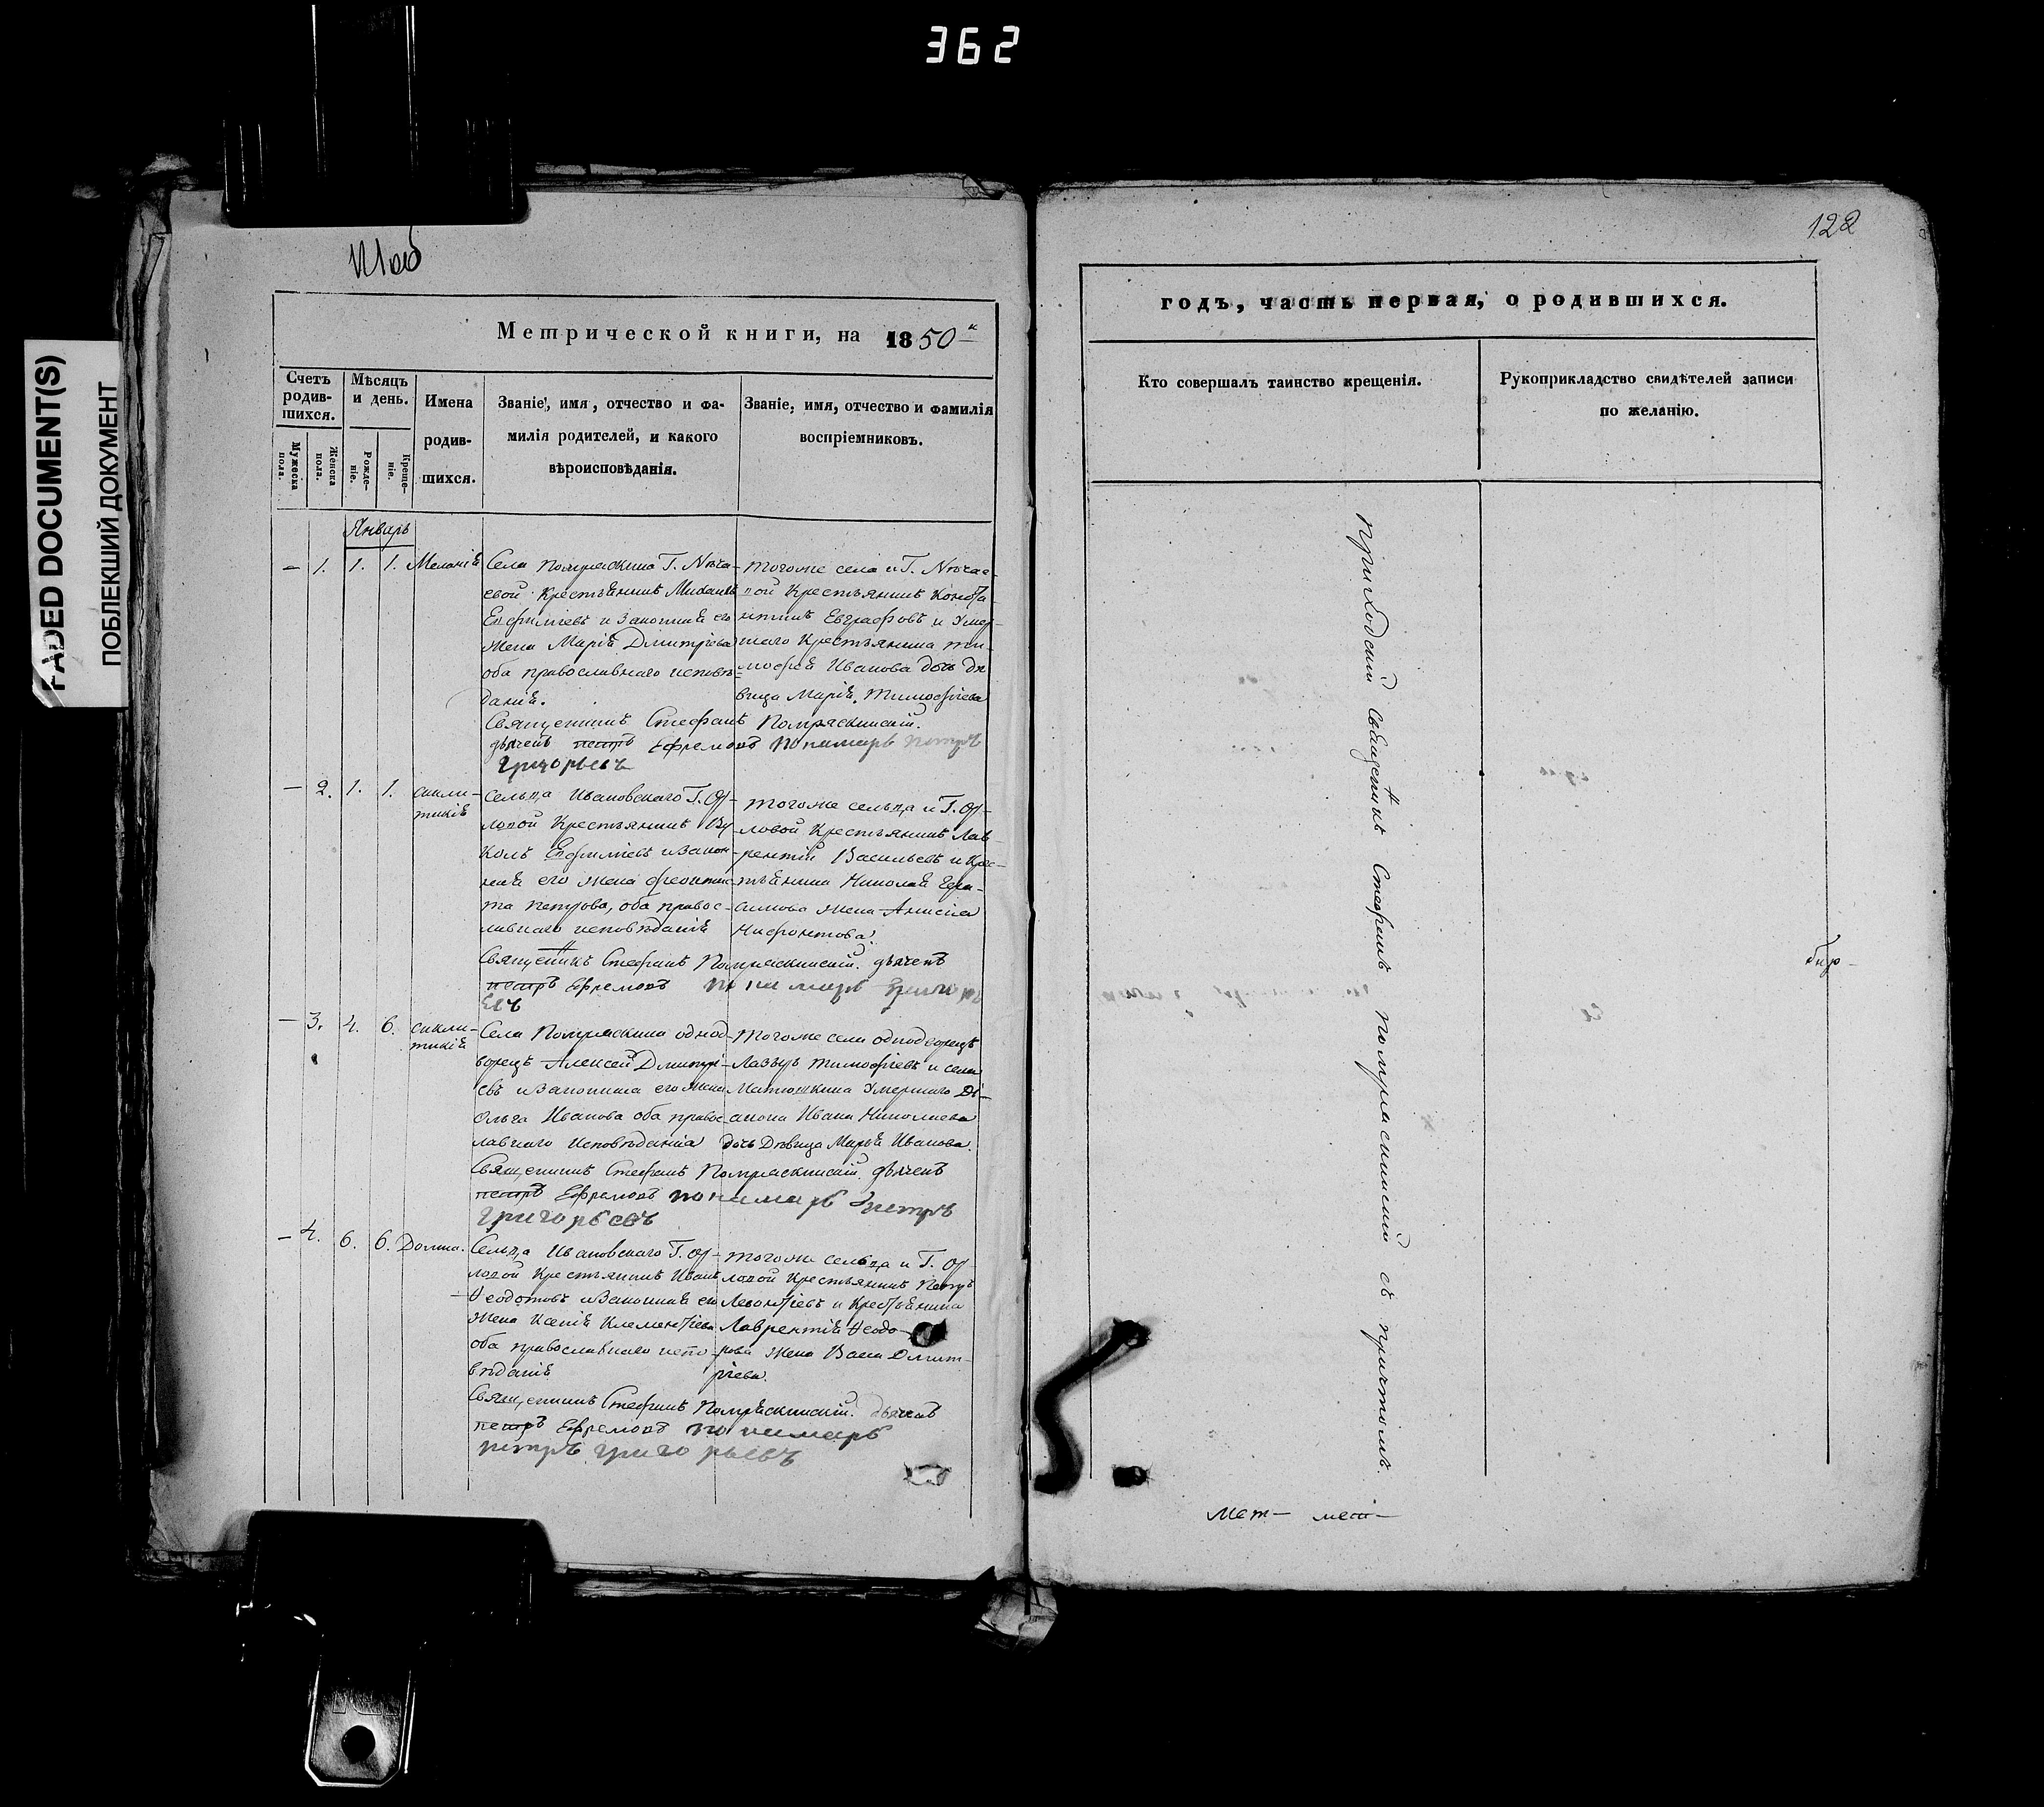 362
FADED DOCUMENT(S)
ПОБЛЕКШИЙ ДОКУМЕНТ
122
Метрической книги, на 1850
годъ, часть первая, о родившихся.
Счетъ родив-шихся.
Мужеска пола.
Женска пола.
Мѣсяцъ и день.
Рожде-ніе.
Креще-ніе.
Имена родив-шихся.
Званіе, имя, отчество и фа-
милія родителей, и какого
вѣроисповѣданія.
Званіе, имя, отчество и фамилія
воспріемниковъ.
Кто совершалъ таинство крещенія.
Рукоприкладство свидѣтелей записи
по желанію.
Январь
– 1. 1. 1. Меланія
Села Помряскина Г. Нѣча-
евой Крестьянинъ Михаилъ
Евфиміевъ и Законная его
жена Марія Димитріева
оба православнаго исповѣ-
данія.
Тогоже села и Г. Нѣчае-
вой Крестьянинъ
Евграфовъ и Умер-
шаго Крестьянина Ти-
мофея Иванова дочь дѣ
вица Марія Тимофіева
Священникъ Стефанъ Помряскинскій.
дьячекъ петръ Ефремовъ Пономарь петръ
Григорьевъ
– 2. 1. 1. Синкли-
тикія
Сельца Ивановскаго Г. Ор-
ловой Крестьянинъ Ву
колъ Евфиміевъ и Закон-
ная его жена Феоктис-
та петрова, оба правос-
лавнаго исповѣданія
Тогоже сельца и Г. Ор-
ловой Крестьянинъ Лав
рентій Васильевъ и Крес-
тьянина Николая Гера-
симова жена Анисія
Нифонтова.
Священникъ Стефанъ Помряскинскій. дьячекъ
петръ Ефремовъ пономарь Григорь
евъ
– 3. 4. 6. Синкли-
тикія
Села Помряскина однод-
ворецъ Алексей Димитрі-
евъ и Законная его жена
Ольга Иванова оба правос
лавнаго Исповѣданія
Тогоже села однодворецъ
Лазарь Тимофіевъ и села
Матюшкина Умершаго Ді-
акона Ивана Николаева
дочь Дѣвица Марья Иванова.
Священникъ Стефанъ Помряскинскій. дьячекъ
петръ Ефремовъ пономарь петръ
григорьевъ
– 4. 6. 6. Домна.
Сельца Ивановскаго Г. Ор-
ловой Крестьянинъ Иванъ
Ѳеодотовъ и Законная его
жена Ксенія Клементіева
оба православнаго испо-
вѣданія
Тогоже сельца и Г. Ор
ловой Крестьянинъ Петръ
Левонтіевъ и Крестьянина
Лаврентія Ѳеодо-
рова жена Васса Димит-
ріева.
Священникъ Стефанъ Помряскинскій. дьячекъ
петръ Ефремовъ пономарь
петръ григорьевъ
Приходскій священникъ Стефанъ Помряскинскій съ причтомъ.
мет– мет–